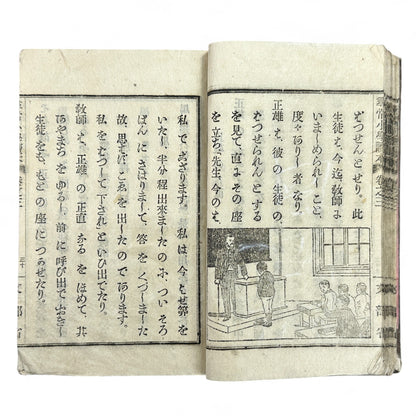 ばつせんとせり。此
生徒は、今迄教師に
いましめられしこと、
度々ありし者なり
正雄は、彼の生徒の、
ばつせられんとする
を見て、直にその座
を立ち、先生、今のは、
文部省
私でござります。私は、今、よせ算を
いたし、半分程出來ましたのに、つい、そろ
ばんにさはりまして、答をくづしました
故、思はずこゑを出したので
私をばつして下されといひ出でたり。
教師は、正雄の正直なるをほめて、其
あやまちをゆるし、前に呼び出で
生徒をも、もとの座につかせたり。
文部省